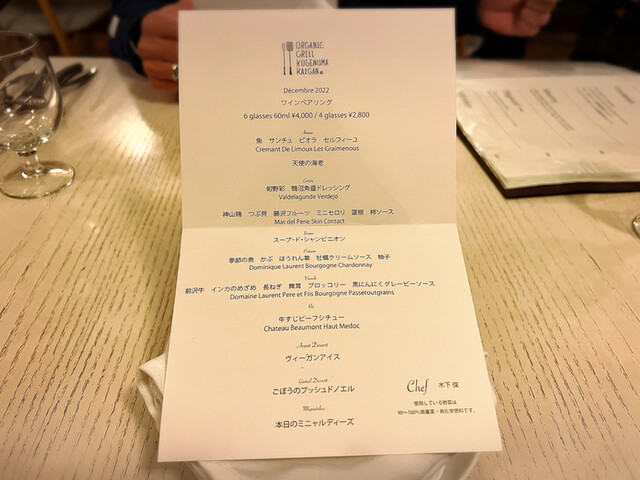 ORGANIC
GRILL
KUGENUMA
KAIGAN
Décembre 2022
ワインペアリング
6 glasses 60ml ¥4,000 / 4 glasses ¥2,800
魚 サンチュ ビオラ セルフィーユ
Cremant De Limoux Les Graimenous
天使の海老
旬野彩 鵠沼魚醤ドレッシング
Valdelagunde Verdejo
神山鶏 つぶ貝 藤沢フルーツ ミニセロリ 蓮根 柿ソース
Mas del Perie Skin Contact
Soupe
スープ・ド・シャンピニオン
Poisson
季節の魚 かぶ ほうれん草 牡蠣クリームソース 柚子
Dominique Laurent Bourgogne Chardonnay
Viande
前沢牛 インカのめざめ 長ねぎ 舞茸 ブロッコリー 黒にんにくグレービーソース
Domaine Laurent Pere et Fils Bourgogne Passetoutgrains
Riz
牛すじビーフシチュー
Chateau Beaumont Haut Medoc
Avant Dessert
ヴィーガンアイス
Grand Dessert
ごぼうのブッシュドノエル
本日のミニャルディーズ
Chef 木下 俊
使用している野菜は
90〜100%無農薬・無化学肥料です。